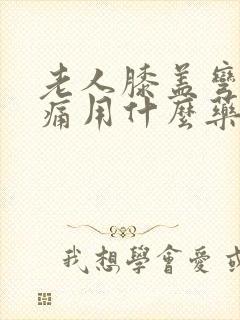 老人膝盖弯
痛用什麼藥
我想學會愛或